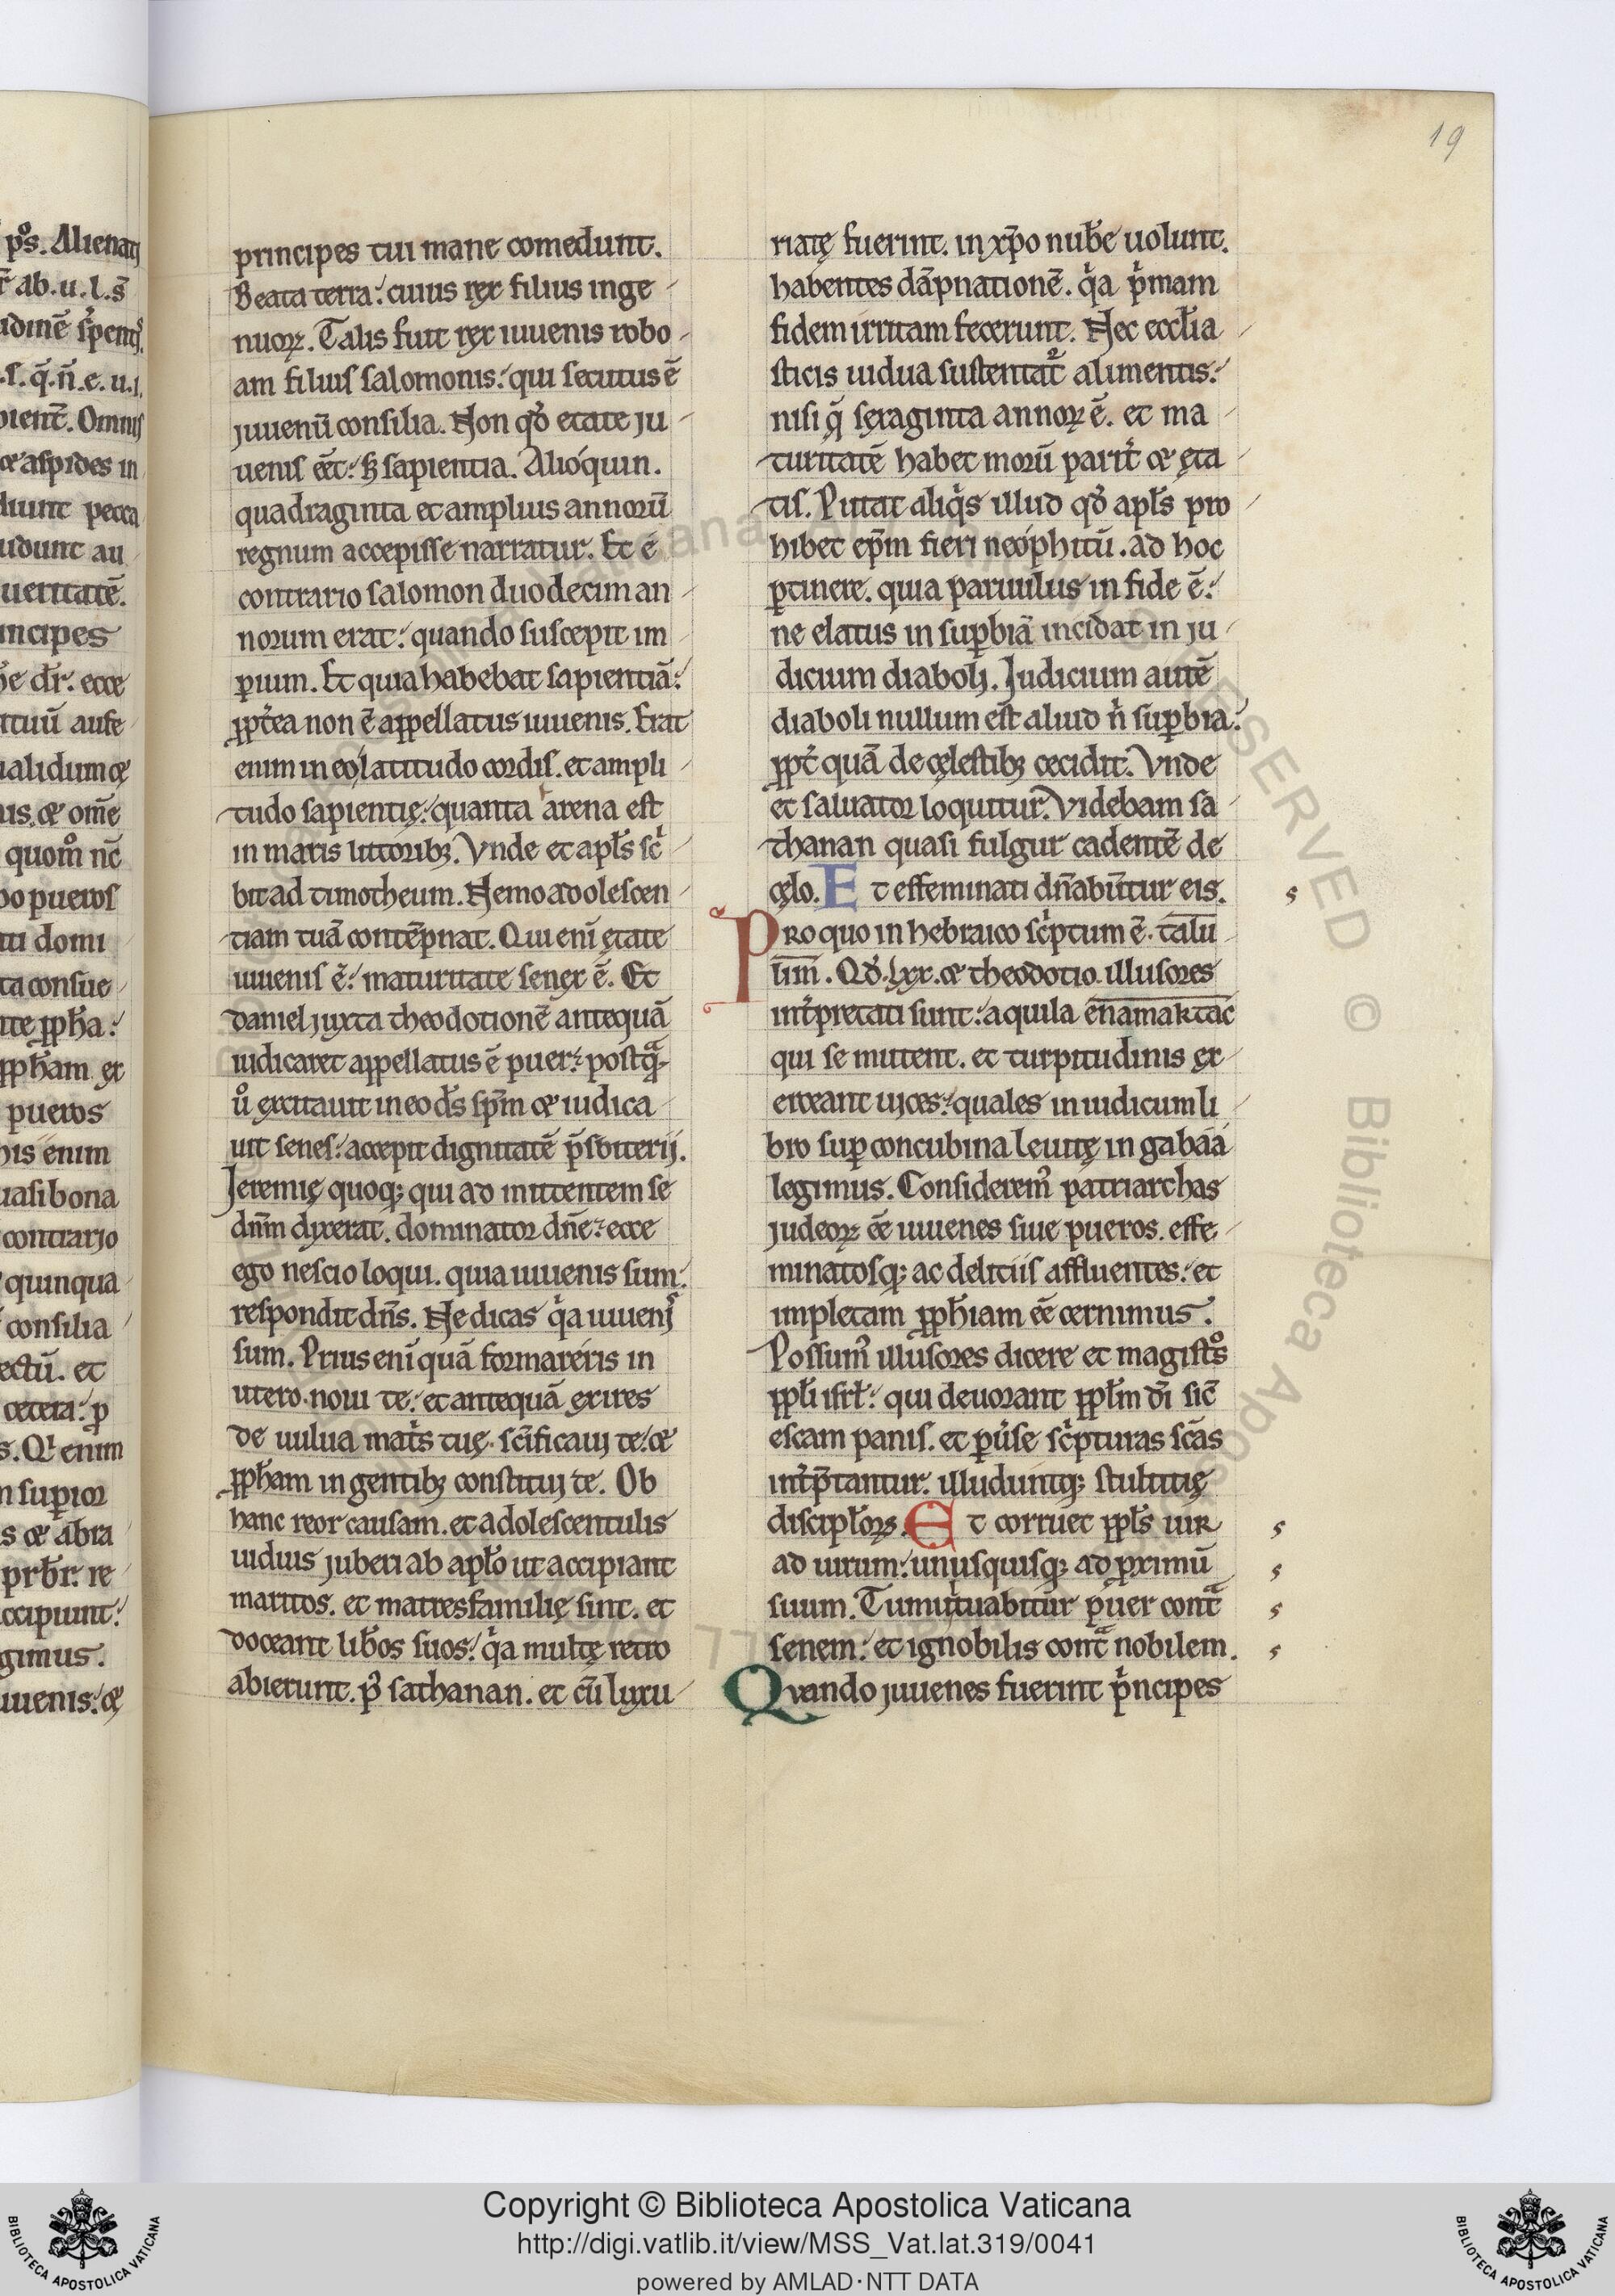 19
principes tui mane comedunt.
Beata terra: cuius rex filius inge
nuoꝝ. Talis fuit rex iuuenis robo
am filius salomonis: qui secutus ē
juuenū consilia. Non qđ etate ju
uenis eēt: sꝫ sapientia. Alioquin.
quadraginta et amplius annorū
regnum accepisse narratur. Et e
contrario salomon duodecim an
norum erat: quando suscepit im
ꝑium. Et quia habebat sapientiā:
ꝓpt̄ea non ē appellatus iuuenis. Erat
enim in eo latitudo cordis. et ampli
tudo sapientię: quanta arena est
in maris littoribꝫ. Vnde et apl̄s sc̄i
bit ad timotheum. Nemo adolescen
tiam tuā contēpnat. Qui enī ętate
iuuenis ē: maturitate senex ē. Et
daniel juxta theodotionē antequā
iudicaret appellatus ē puer: postqᷓ
uͦ excitauit in eo ds̄ sp̄m & iudica
uit senes: accepit dignitatē p̄sbiterij.
Jeremię quoqꝫ qui ad mittentem se
dn̄m dixerat. dominator dn̄e: ecce
ego nescio loqui. quia iuuenis sum:
respondit dn̄s. Ne dicas qͥa iuuenis
sum. Prius enī quā formareris in
utero. noui te: et antequā exires
de uulua mat̄s tuę. sc̄ificauj te: &
ꝓph̄am in gentibꝫ constituj te. Ob
hanc reor causam. et adolescentulis
uiduis juberi ab apl̄o ut accipiant
maritos. et matresfamilię sint. et
doceant lib̄os suos: qͥa multę retro
abierunt. p᷒ sathanan. et cū luxu
riatę fuerint. in xp̄o nub̄e uolunt.
habentes dāpnationē. qͥa pͥmam
fidem irritam fecerunt. Nec eccl̄ia
sticis uidua sustentat᷑ alimentis:
nisi q̄ sexaginta annoꝝ ē. et ma
turitatē habet morū parit̄ & ęta
tis. Putat aliqͥs illud qđ apl̄s pro
hibet ep̄m fieri neophitū. ad hoc
ꝑtinere. quia paruulus in fide ē:
ne elatus in suꝑbiā incidat in ju
dicium diaboli. Judicium autē
diaboli nullum est aliud nͥ suꝑbia:
ꝓpt̄ quā de cęlestibꝫ cecidit. Vnde
et saluator loquitur. Videbam sa
thanan quasi fulgur cadentē de
cęlo. Et effeminati dn̄abūtur eis.
Pro quo in hebraico scͥptum ē. talu
lim. Qđ. lxx. & theodotio. illusores
int̄pretati sunt: aquila enamaktac
qui se mutent. et turpitudinis ex
erceant uices: quales in iudicum li
bro suꝑ concubina leuitę in gabaa
legimus. Considerem᷒ patriarchas
judeoꝝ eē iuuenes siue pueros. effe
minatosqꝫ ac delitiis affluentes: et
impletam ꝓph̄iam eē cernimus.
Possum᷒ illusores dicere et magistͦs
ppl̄i isrl̄: qui deuorant ppl̄m dī sic̄
escam panis. et ꝑu᷒se scͥpturas sc̄as
int̄p̄tantur. illuduntqꝫ stultitię
discipl̄oꝝ. Et corruet ppl̄s uir
ad uirum: unusquisqꝫ ad ꝓximū
suum. Tumultuabitur puer contᷓ
senem: et ignobilis contᷓ nobilem.
Quando juuenes fuerint pͥncipes
Copyright © Biblioteca Apostolica Vaticana
http://digi.vatlib.it/view/MSS_Vat.lat.319/0041
powered by AMLAD·NTT DATA